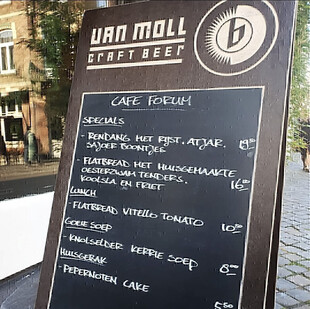 VAN MOLL
CRAFT BEER
b
CAFE FORUM
SPECIALS
- RENDANG MET RIJST, ATJAR,
SAJOER BOONTJES
- FLATBREAD MET HUISGEMAAKTE
OESTERZWAM TENDERS,
KOOLSLA EN FRIET 16.00
LUNCH
- FLATBREAD VITELLO TONATO
GOEIE SOEP
- KNOLSELDER KERRIE SOEP 8.00
HUISGEBAK
- PEPERNOTEN CAKE
5.50